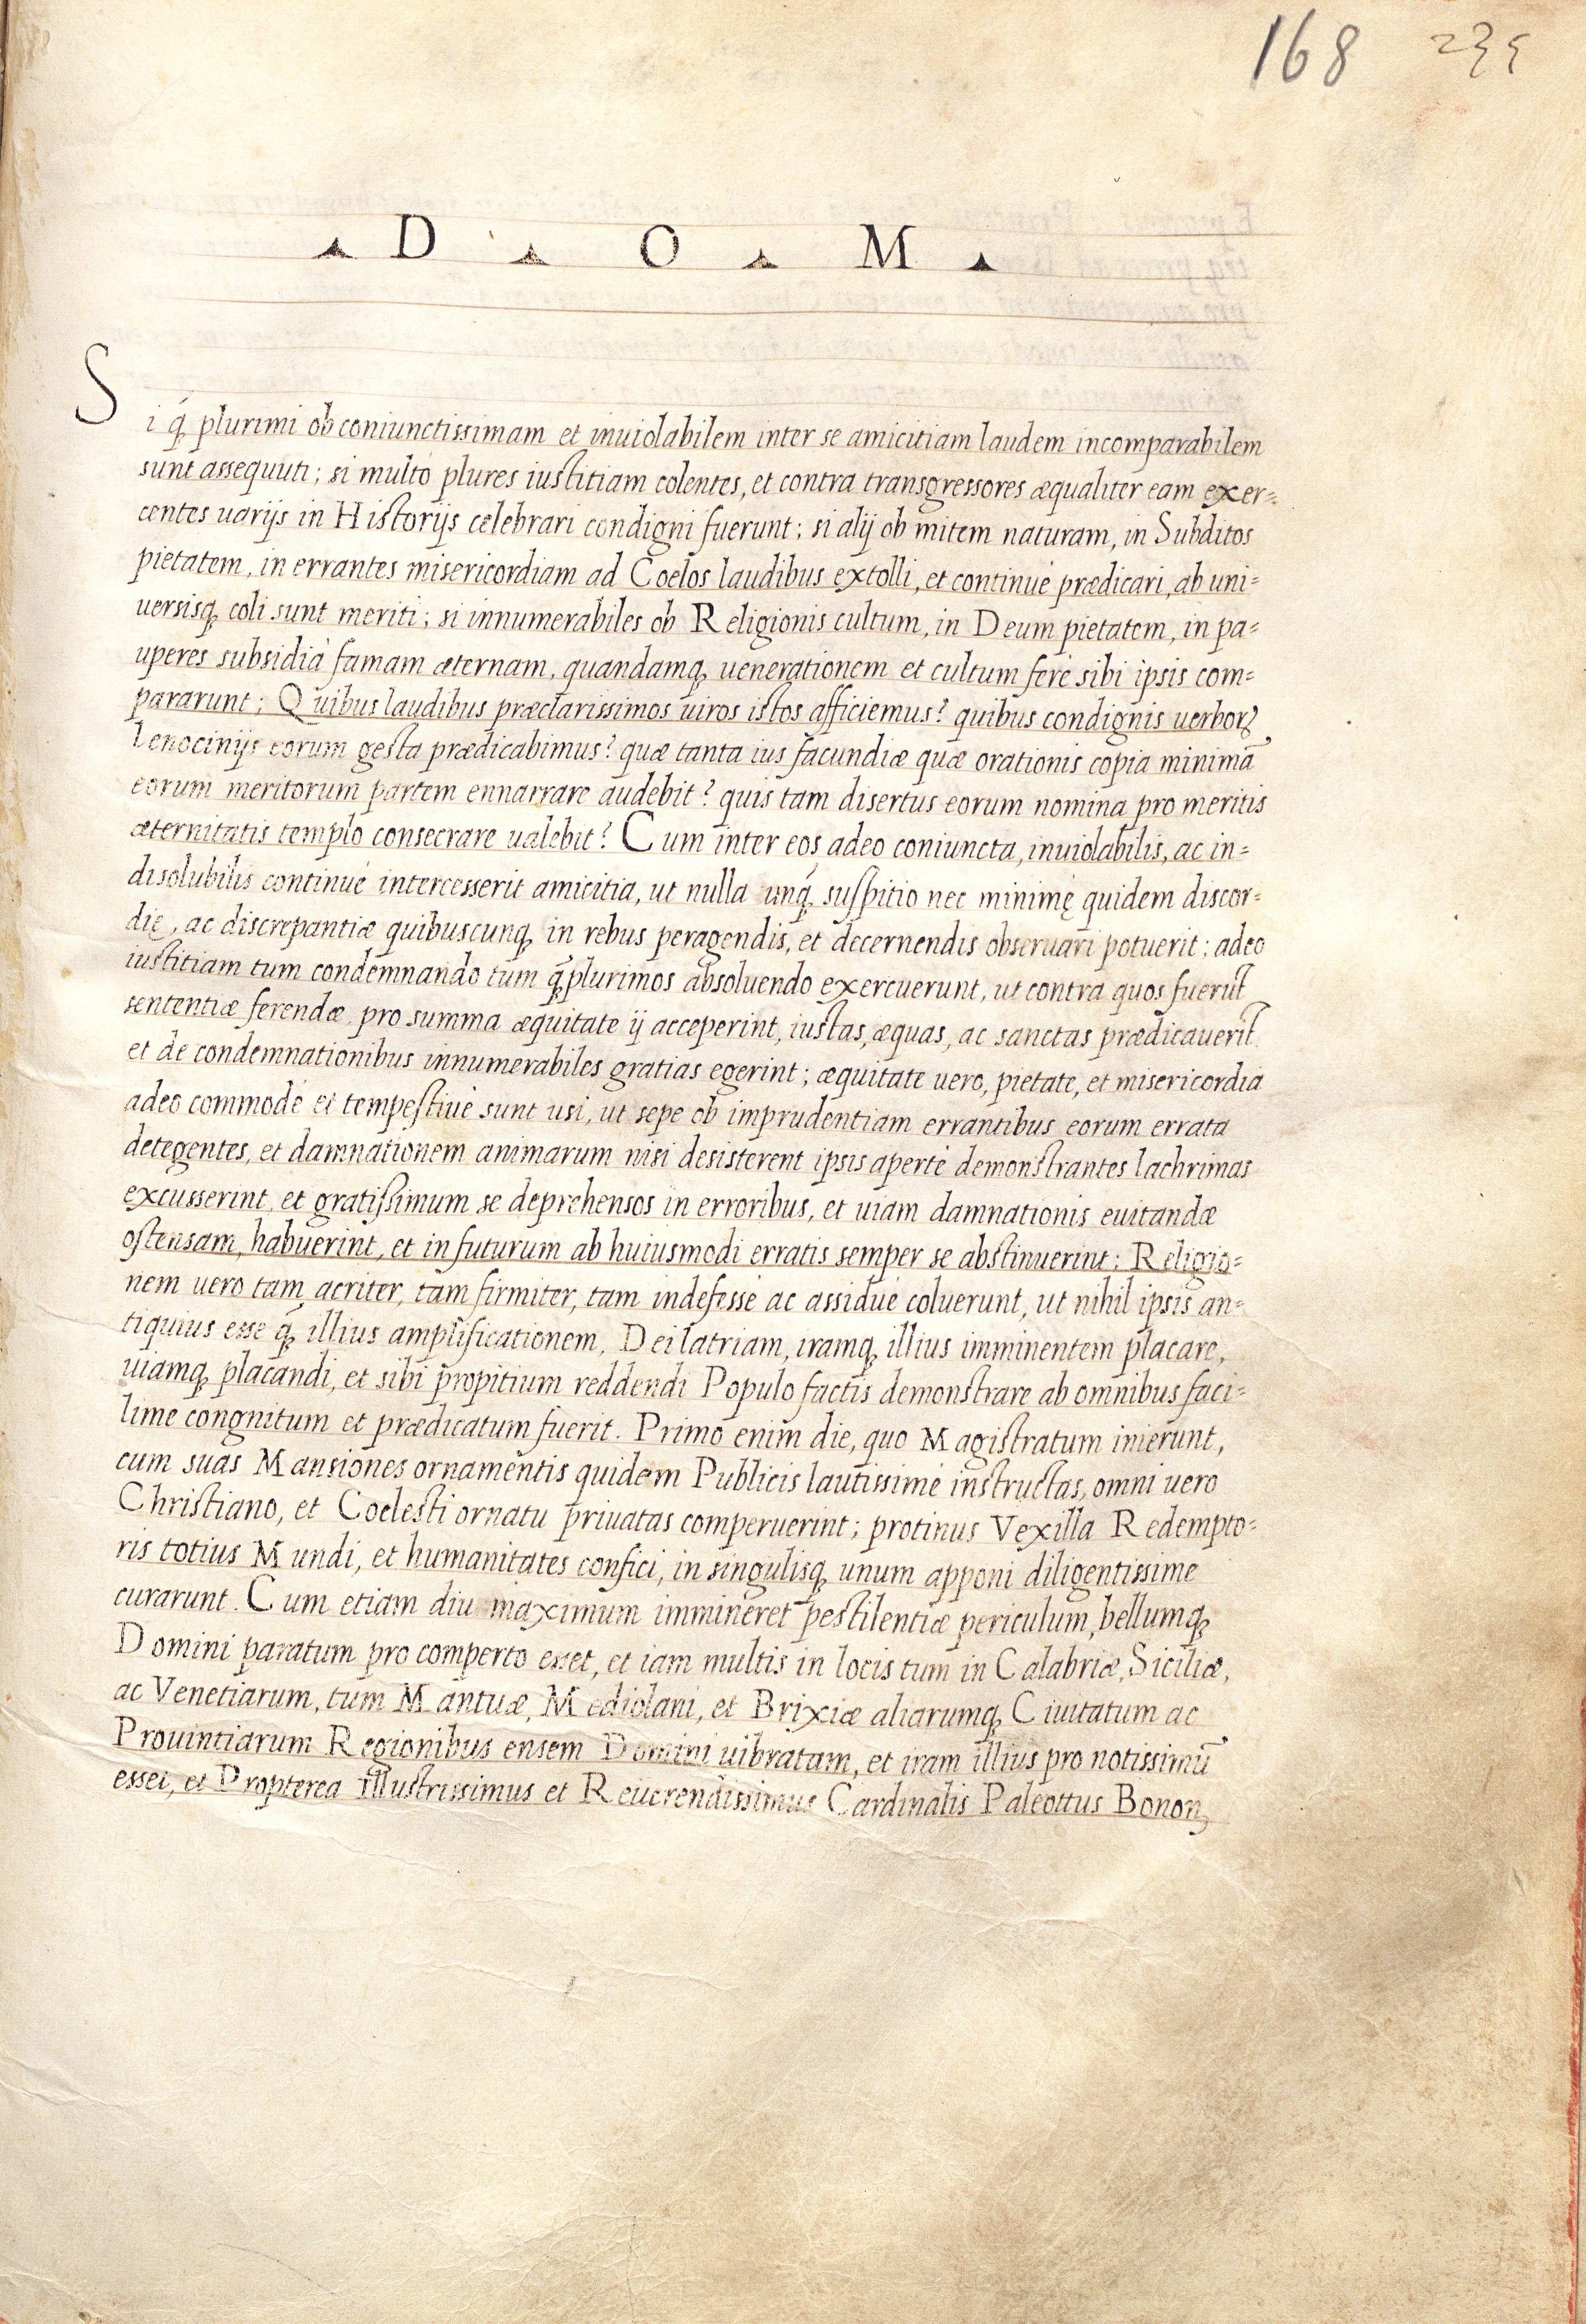 168 235
D O M
Si q̃ plurimi ob coniunctissimam et inuiolabilem inter se amicitiam laudem incomparabilem
sunt assequuti; si multò plures iustitiam colentes, et contra transgressores æqualiter eam exer=
centes uarijs in Historijs celebrari condigni fuerunt; si alij ob mitem naturam, in Subditos
pietatem, in errantes misericordiam ad Coelos laudibus extolli, et continuè prædicari, ab uni=
uersisq coli sunt meriti; si innumerabiles ob Religionis cultum, in Deum pietatem, in pa=
uperes subsidia famam æternam, quandamq uenerationem et cultum ferè sibi ipsis com=
pararunt; Quibus laudibus præclarissimos uiros istos afficiemus? quibus condignis uerborꝝ
lenocinijs eorum gesta prædicabimus? quæ tanta ius facundiæ quæ orationis copia minimã
eorum meritorum partem ennarrare audebit? quis tam disertus eorum nomina pro meritis
æternitatis templo consecrare ualebit? Cum inter eos adeo coniuncta, inuiolabilis, ac in=
disolubilis continuè intercesserit amicitia, ut nulla unq̃ suspitio nec minimę quidem discor=
dię, ac discrepantiæ quibuscunq in rebus peragendis, et decernendis obseruari potuerit; adeo
iustitiam tum condemnando tum q̃plurimos absoluendo exercuerunt, ut contra quos fuerũt
sententiæ ferendæ pro summa æquitate ij acceperint, iustas, æquas, ac sanctas prædicauerĩt
et de condemnationibus innumerabiles gratias egerint; æquitate uero, pietate, et misericordia
adeo commodè et tempestiuè sunt usi, ut sepe ob imprudentiam errantibus eorum errata
detegentes, et damnationem animarum nisi desisterent ipsis apertè demonstrantes lachrimas
excusserint, et gratissimum se deprehensos in erroribus, et uiam damnationis euitandæ
ostensam, habuerint, et in futurum ab huiusmodi erratis semper se abstinuerint; Religio=
nem uero tam acriter, tam firmiter, tam indefessè ac assiduè coluerunt, ut nihil ipsis an=
tiquius esse q̃ illius amplificationem, Dei latriam, iramq illius imminentem placare,
uiamq placandi, et sibi propitium reddendi Populo factis demonstrare ab omnibus faci=
lime congnitum et prædicatum fuerit. Primo enim die, quo Magistratum inierunt,
cum suas Mansiones ornamentis quidem Publicis lautissimè instructas, omni uero
Christiano, et Coelesti ornatu priuatas comperuerint; protinus Vexilla Redempto=
ris totius Mundi, et humanitates confici, in singulisq unum apponi diligentissime
curarunt. Cum etiam diu maximum immineret pestilentiæ periculum, bellumq
Domini paratum pro comperto esset, et iam multis in locis tum in Calabriæ, Siciliæ,
ac Venetiarum, tum Mantuæ, Mediolani, et Brixiæ aliarumq Ciuitatum ac
Prouintiarum Regionibus ensem Domini uibratam, et iram illius pro notissimũ
esset, et Propterea Illustrissimus et Reuerendissimus Cardinalis Paleottus Bonon